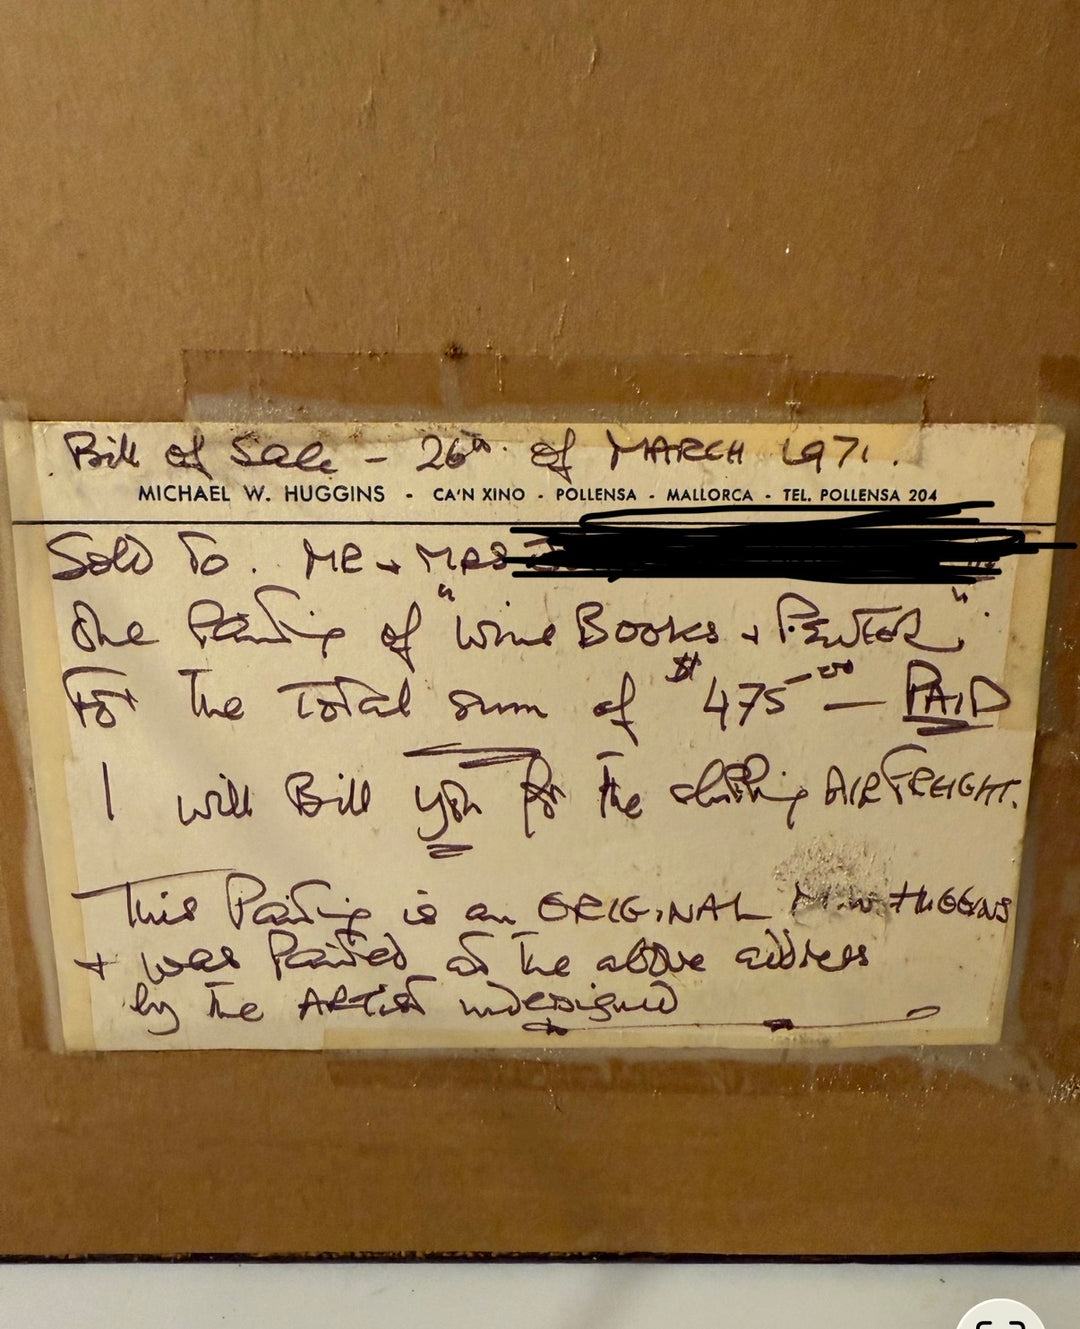 Bill of Sale - 26th. of MARCH 1971.
MICHAEL W. HUGGINS - CA'N XINO - POLLENSA - MALLORCA - TEL. POLLENSA 204
Sold To. MR + MRS
One Painting of "Wine Books + PEWTER".
For The Total sum of $475-00 — PAID
I will Bill you for the shipping AIRFREIGHT.
This Painting is an ORIGINAL M.W. HUGGINS
+ was Painted at the above address
by The ARTIST undersigned